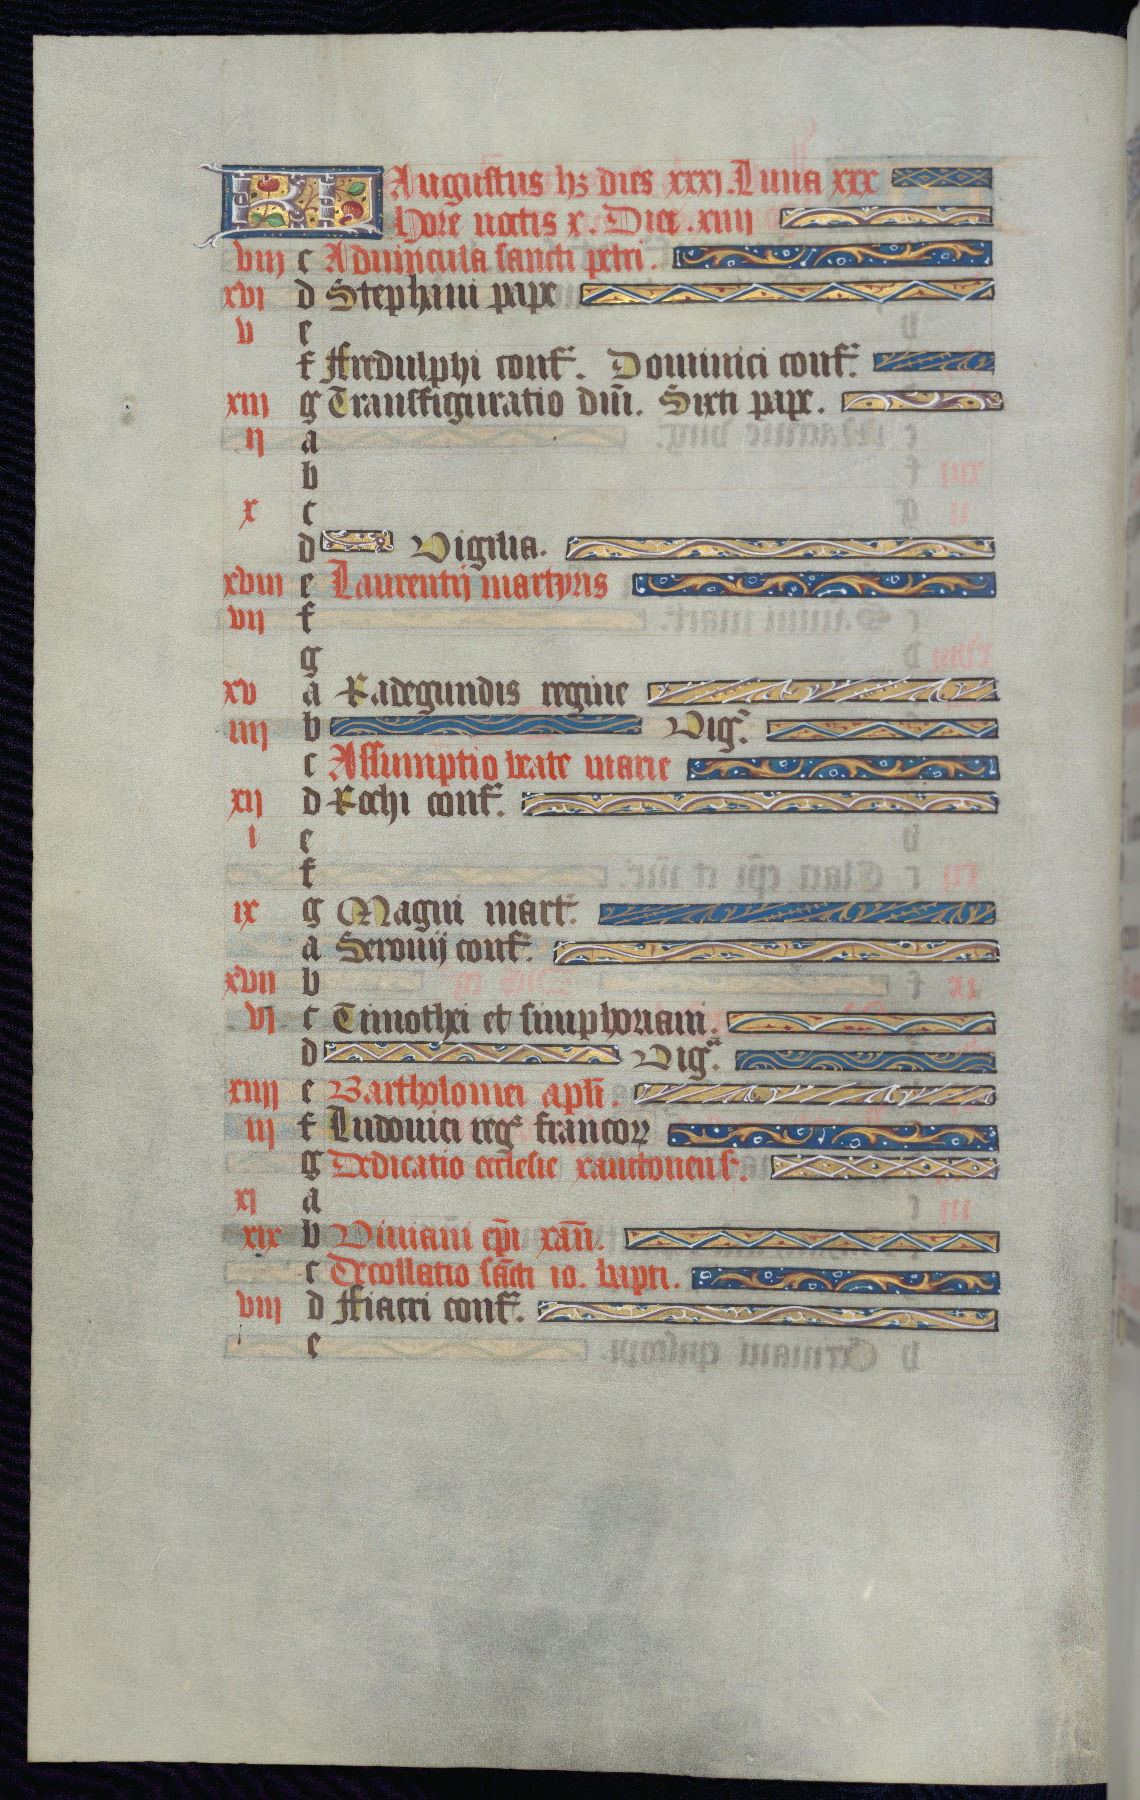 KL Augustus hꝫ dies xxxj. Luna xxx
Hore noctis x. Diei .xiiij
viij c Advincula sancti petri.
xvj d Stephani pape
v e
f ffredulphi conf. Dominici conf.
xiij g Transfiguratio dñi. Sixti pape.
ij a
b
x c
d Vigilia.
xviij e Laurentij martyris
vij f
g
xv a Radegundis regine
iiij b Vig.
c Assumptio beate marie
xij d Rochi conf.
j e
f
ix g Magni mart.
a Seronij conf.
xvij b
vj c Timothei et simphoriani.
d Vigª.
xiiij e Bartholomei apl̃i.
iij f Ludovici reg francoꝝ
g Dedicatio ecclesie xanctonens.
xj a
xix b Viviani ep̃i xañ.
c Decollatio sc̃ti io. bapti.
viij d ffiacri conf.
e